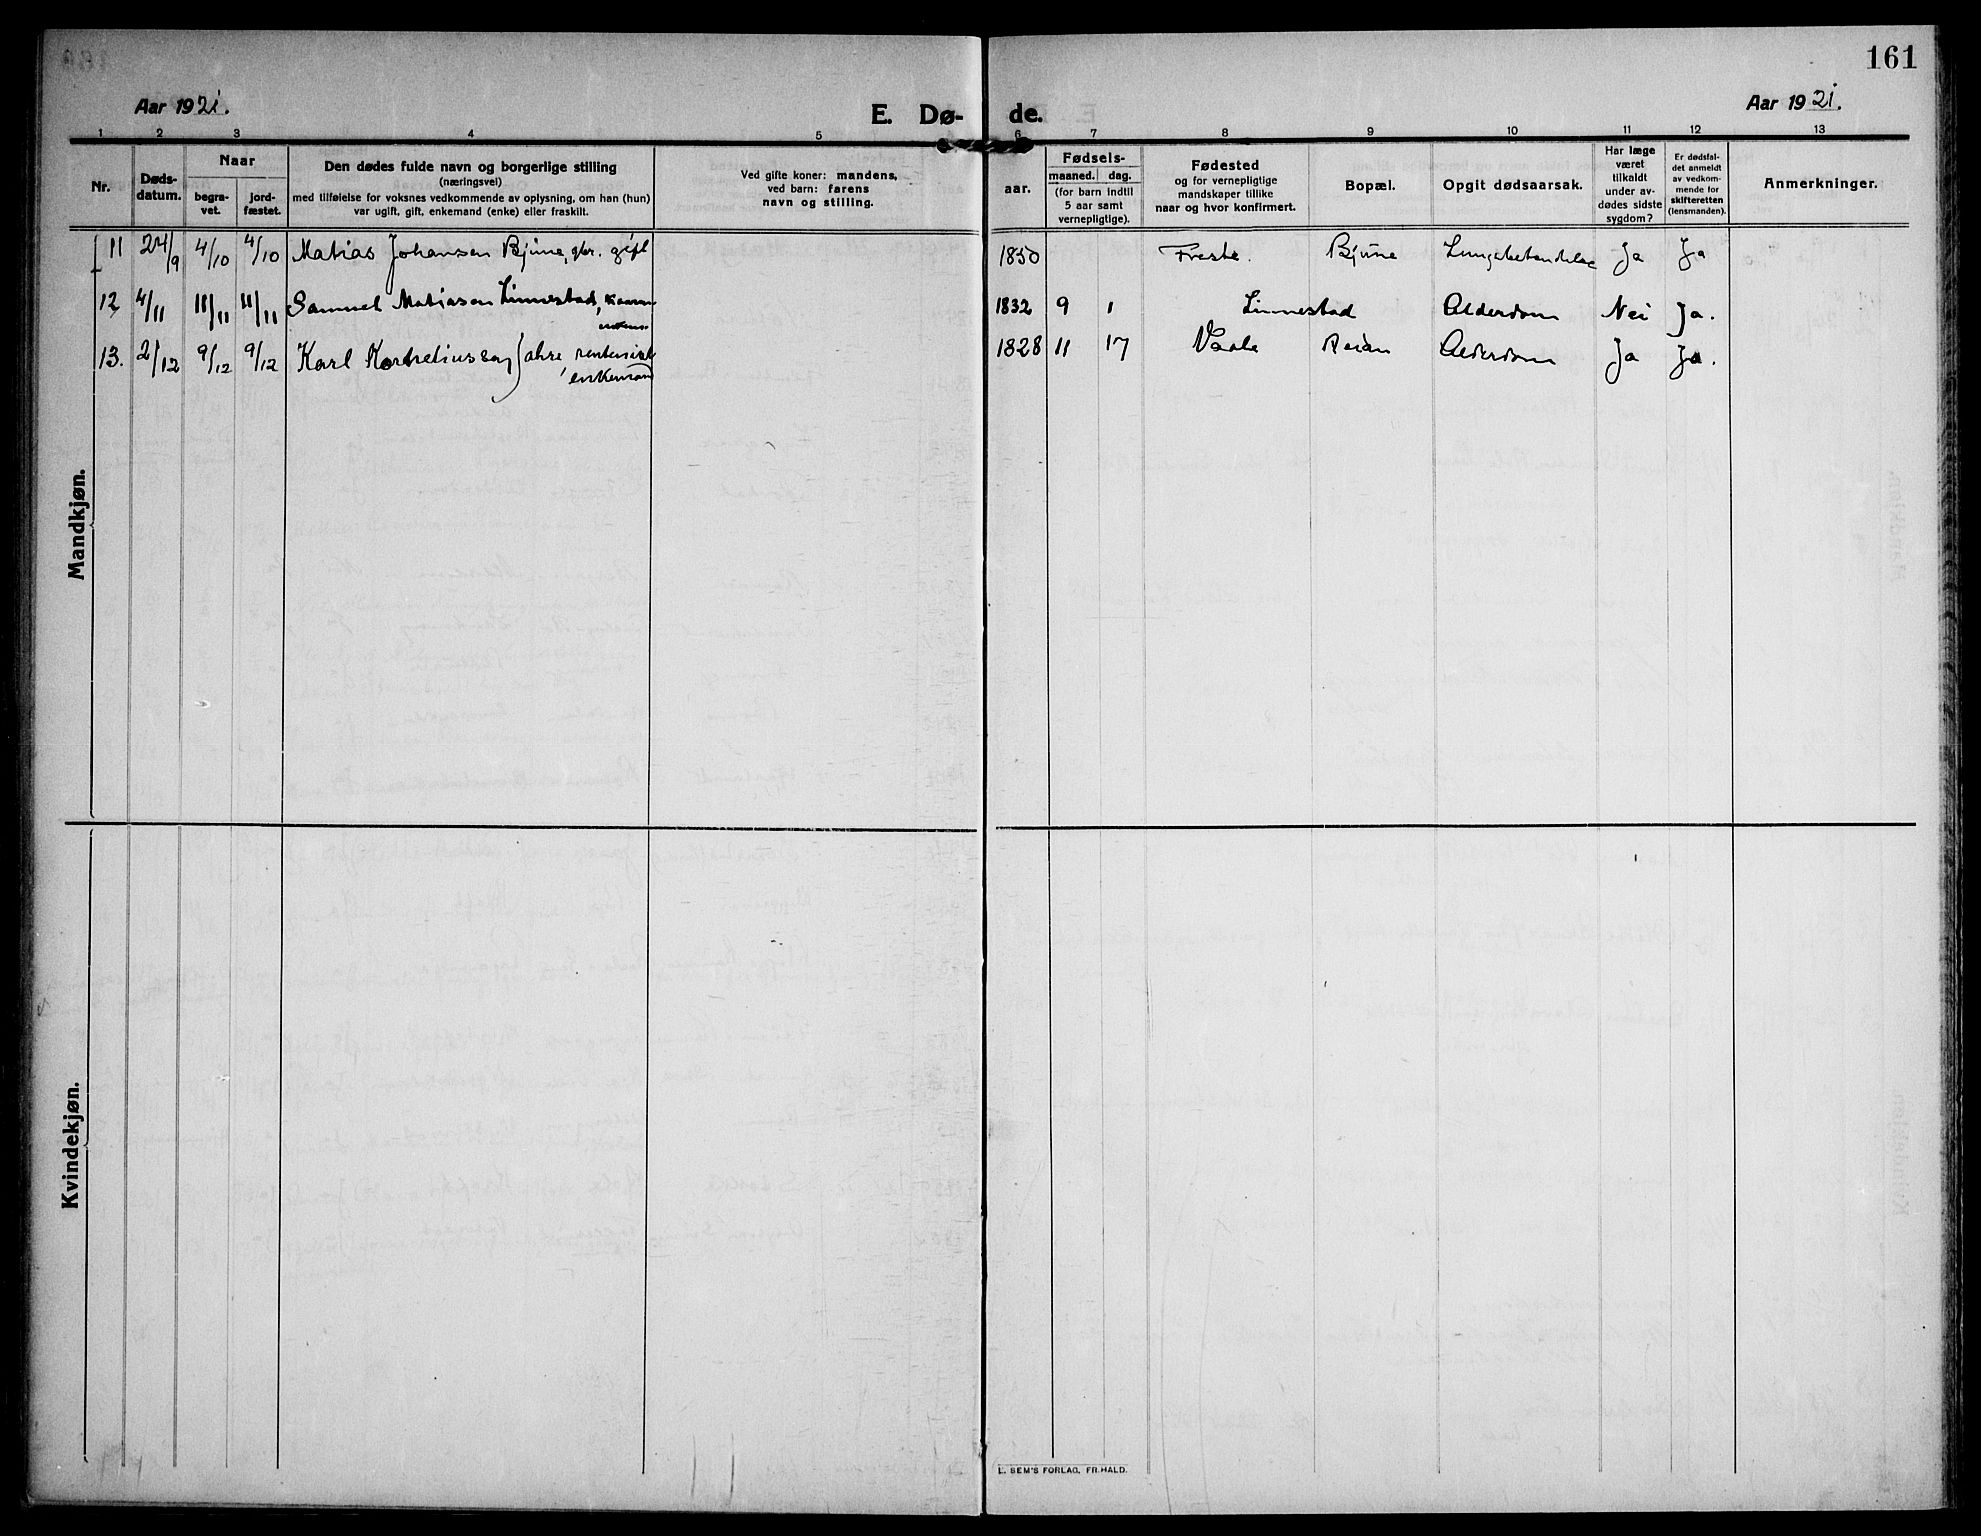 161
Aar 1921.
E. Dø-
de.
Aar 1921.
1 2 3 4 5 6 7 8 9 10 11 12 13
Nr.
Døds-
datum.
Naar
begra-
vet.
jord-
fæstet.
Den dødes fulde navn og borgerlige stilling
(næringsvei)
med tilføielse for voksnes vedkommende av oplysning, om han (hun)
var ugift, gift, enkemand (enke) eller fraskilt.
Ved gifte koner: mandens,
ved barn: farens
navn og stilling.
aar.
Fødsels-
maaned. dag.
(for barn indtil
5 aar samt
vernepligtige).
Fødested
og for vernepligtige
mandskaper tillike
naar og hvor konfirmert.
Bopæl.
Opgit dødsaarsak.
Har læge
været
tilkaldt
under av-
dødes sidste
sygdom?
Er dødsfal-
det anmeldt
av vedkom-
mende for
skifteretten
(lensmanden).
Anmerkninger.
Mandkjøn.
11 24/9 4/10 4/10 Matias Johansen Bjune, gbr. gift 1850 Freste. Bjune Lungebetendelse Ja Ja
12 4/11 11/11 11/11 Samuel Matiasen Linnestad, 1832 9 1 Linnestad Alderdom Nei Ja.
13. 2/12 9/12 9/12 Karl Korneliussen 1828 11 17 Vaale Alderdom Ja Ja.
enkemand
Kvindekjøn.
L. SEM'S FORLAG, FR.HALD.